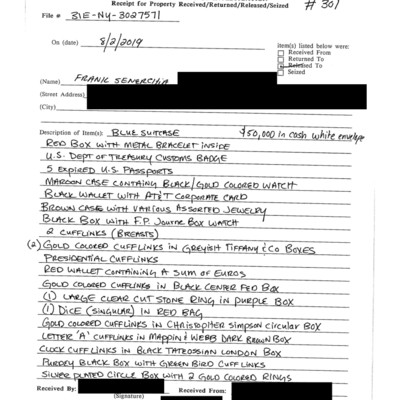 Receipt for Property Received/Returned/Released/Seized
# 301
File # 31E-NY-3027571
On (date) 8/2/2019
item(s) listed below were:
Received From
Returned To
Released To
Seized
(Name)
(Street Address)
(City)
Description of Item(s): BLUE SUITCASE $50,000 in cash white envelope
RED BOX WITH METAL BRACELET INSIDE
U.S. DEPT OF TREASURY CUSTOMS BADGE
5 EXPIRED U.S. PASSPORTS
MAROON CASE CONTAING BLACK/GOLD COLORED WATCH
BLACK WALLET WITH AT&T CORPORATE CARD
BROWN CASE WITH VARIOUS ASSORTED JEWELRY
BLACK BOX WITH F.P. JOURNE BOX WATCH
2 CUFFLINKS (BREASTS)
(2) GOLD COLORED CUFFLINKS IN GREYISH TIFFANY & CO BOXES
PRESIDENTIAL CUFFLINKS
RED WALLET CONTAINING A SUM OF EUROS
GOLD COLORED CUFFLINKS IN BLACK CENTER FED BOX
(1) LARGE CLEAR CUT STONE RING IN PURPLE BOX
(1) DICE (SINGULAR) IN RED BAG
GOLD COLORED CUFFLINKS IN CHRISTOPHER SIMPSON CIRCULAR BOX
LETTER 'A' CUFFLINKS IN MAPPIN & WEBB DARK BROWN BOX
CLOCK CUFFLINKS IN BLACK TATEOSSIAN LONDON BOX
BLACK BOX WITH GREEN BIRD CUFFLINKS
SILVER PLATED CIRCLE BOX WITH 2 GOLD COLORED RINGS
Received By: Received From:
(Signature)